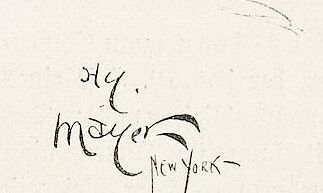 Hy.
Mayer
NEW YORK—